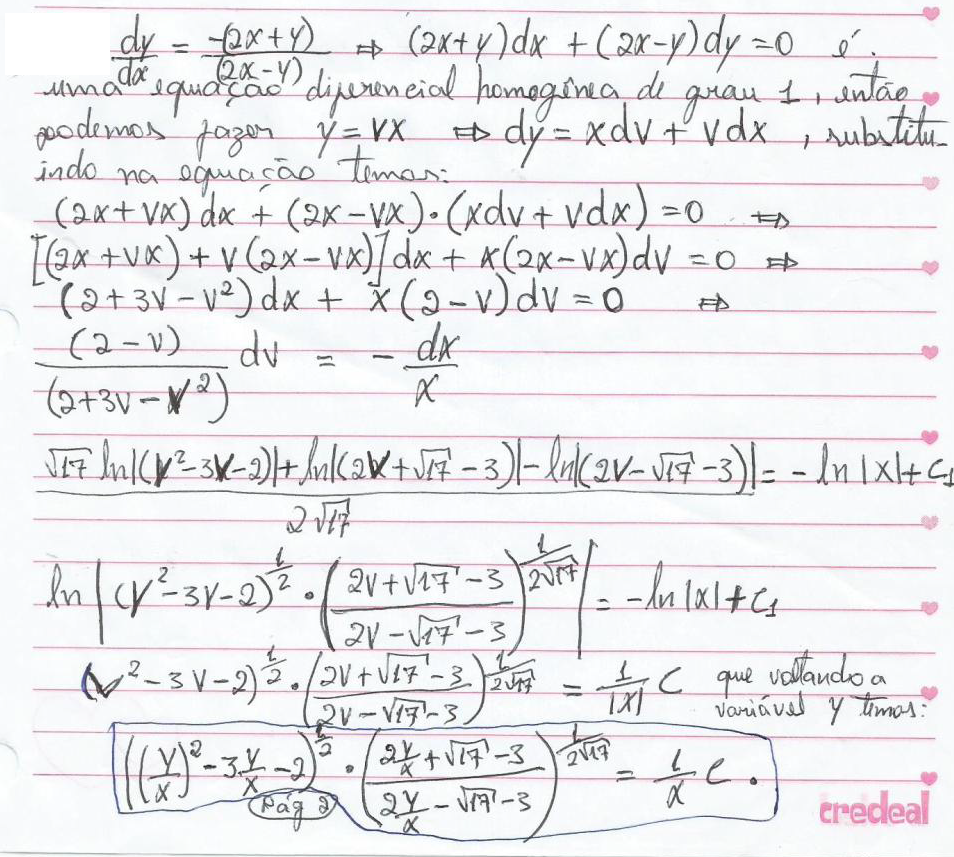 dy/dx = -(2x+y)/(2x-y) ⇒ (2x+y)dx + (2x-y)dy = 0 é
uma equação diferencial homogênea de grau 1, então
podemos fazer y = vx ⇒ dy = xdv + vdx, substitu-
indo na equação temos:
(2x+vx)dx + (2x-vx)·(xdv+vdx) = 0 ⇔
[(2x+vx) + v(2x-vx)]dx + x(2x-vx)dv = 0 ⇒
(2+3v-v²)dx + x(2-v)dv = 0 ⇔
(2-v)/(2+3v-v²) dv = - dx/x
(√17 ln|(v²-3v-2)| + ln|(2v+√17-3)| - ln|(2v-√17-3)|)/(2√17) = -ln|x| + c₁
ln|(v²-3v-2)^(1/2) · ((2v+√17-3)/(2v-√17-3))^(1/(2√17))| = -ln|x| + c₁
(v²-3v-2)^(1/2) · ((2v+√17-3)/(2v-√17-3))^(1/(2√17)) = 1/|x| C que voltando a
variável y temos:
((y/x)²-3y/x-2)^(1/2) · ((2y/x+√17-3)/(2y/x-√17-3))^(1/(2√17)) = 1/x C.
Pág 2
credeal